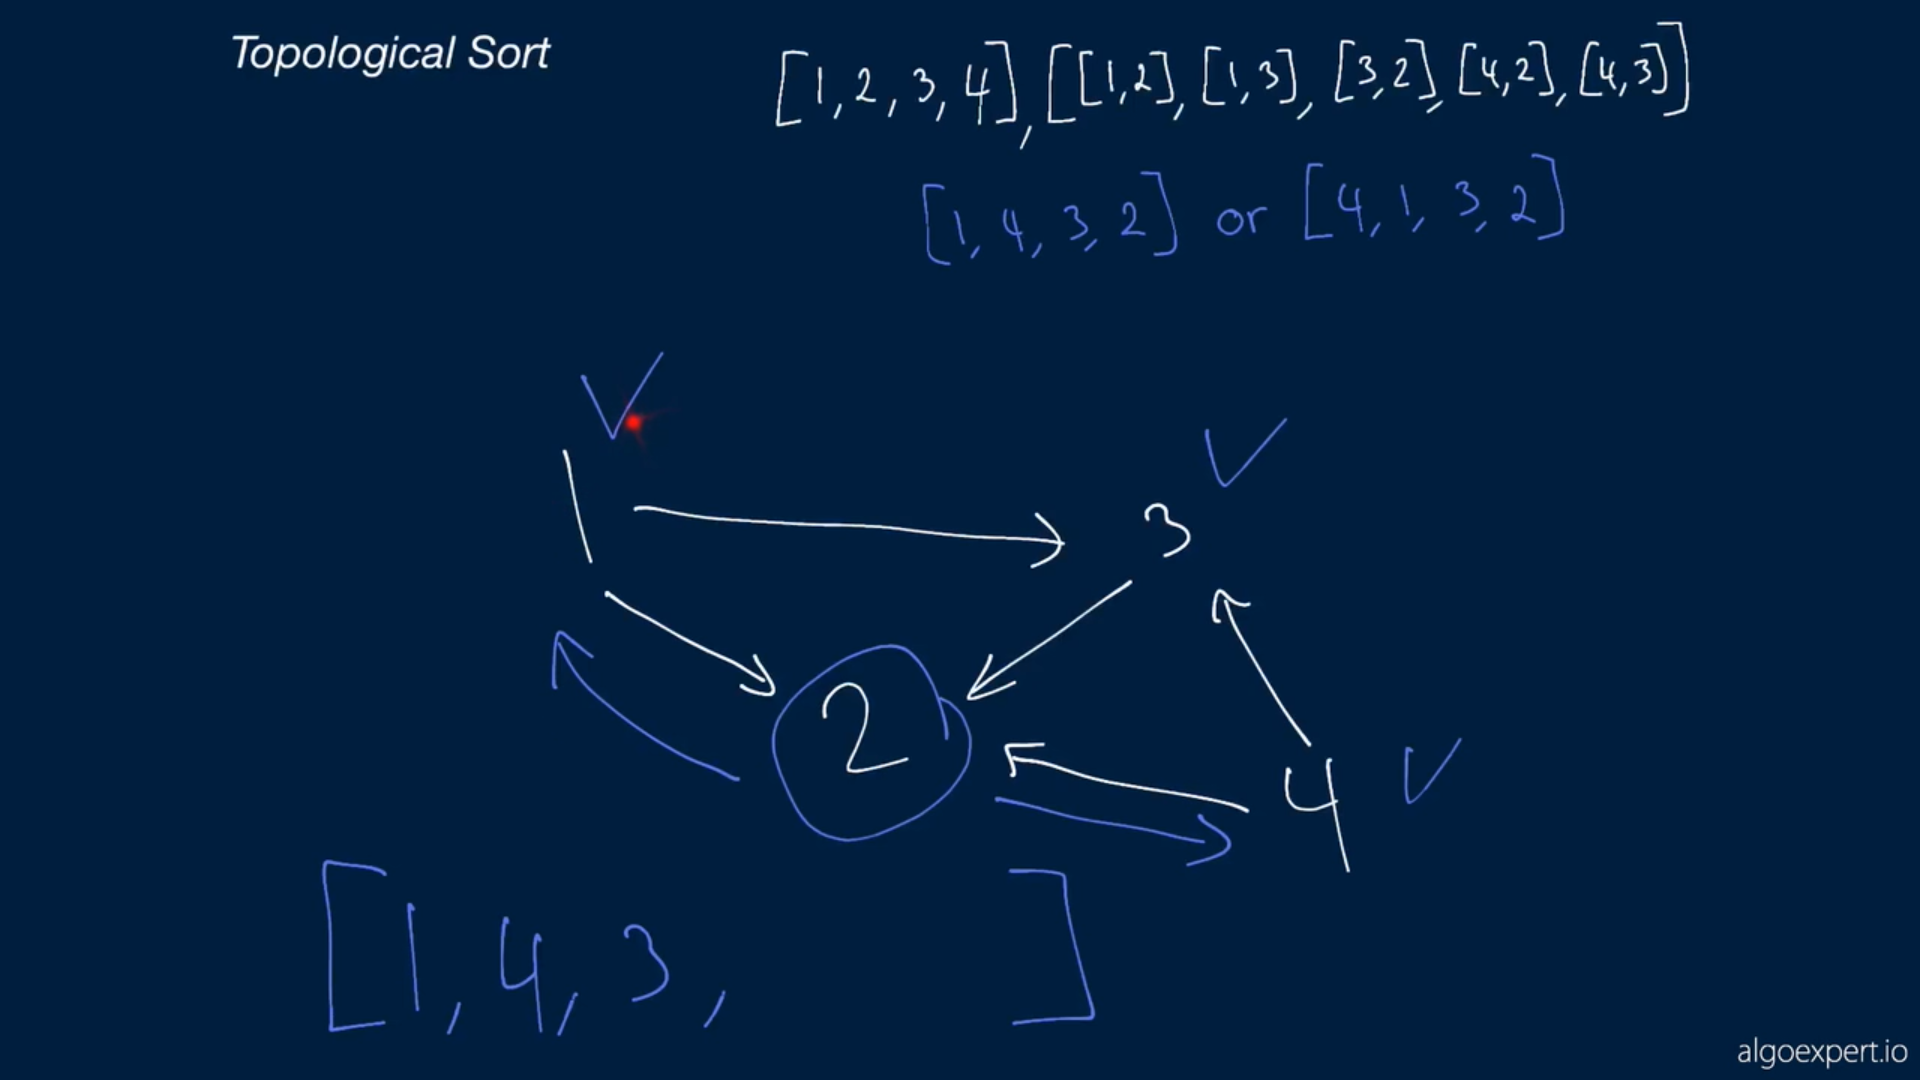 Topological Sort
[1, 2, 3, 4], [[1,2], [1,3], [3,2], [4,2], [4,3]]
[1, 4, 3, 2] or [4, 1, 3, 2]
1
3
2
4
[1, 4, 3, ]
algoexpert.io